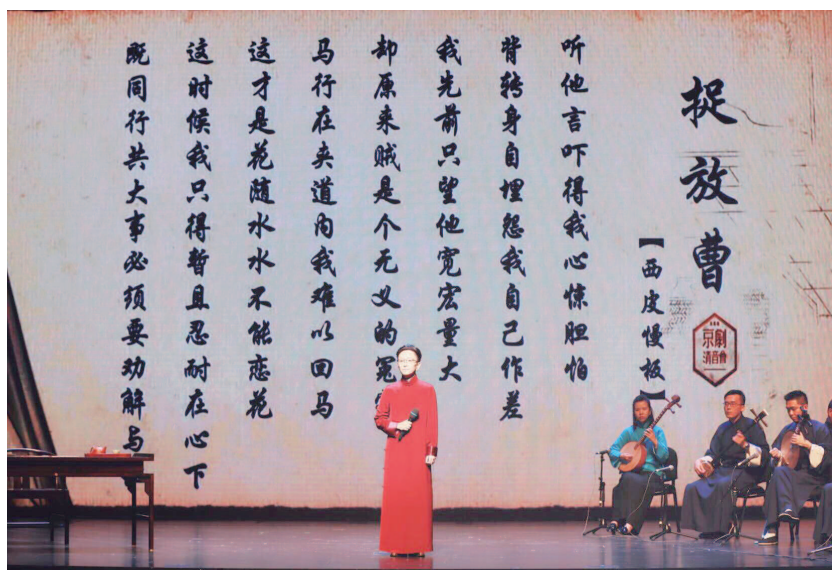 捉放曹
【西皮慢板】
京劇
清音會
听他言吓得我心惊胆怕
背转身自埋怨我自己作差
我先前只望他宽宏量大
却原来贼是个无义的冤
马行在夹道内我难以回马
这才是花随水水不能恋花
这时候我只得暂且忍耐在心下
既同行共大事必须要劝解与